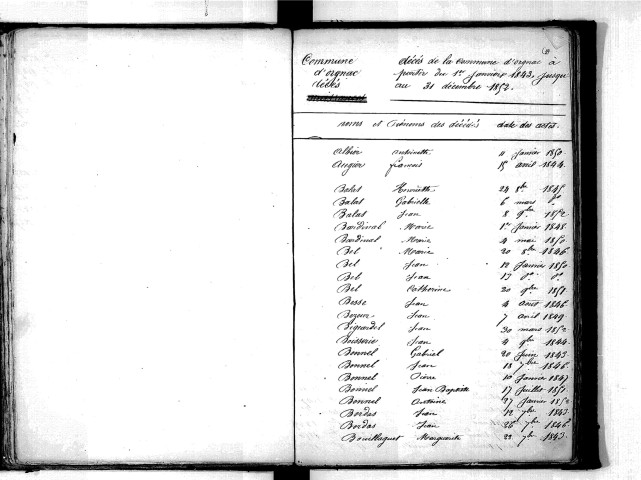 Commune d'orgnac décès
décès de la Commune d'orgnac à
partir du 1er Janvier 1843, jusqu'
au 31 décembre 1852.
noms et Prénoms des décédés date des actes.
Albier antoinette 11 Janvier 1850
Augier francois 15 avril 1844
Balat Henriette 24 8bre 1845
Balat Gabrielle 6 mars do
Balat Jean 8 9bre 1852
Bardinal Marie 1er Janvier 1848
Bardinal Marie 4 mai 1850
Bel Marie 20 8bre 1846
Bel Jean 12 Janvier 1850
Bel Jean 13 do do
Bel Catherine 20 9bre 1851
Besse Jean 4 aout 1846
Jean 7 avril 1849
Bigeardel Jean 30 mars 1852
Boisserie Jean 4 9bre 1844
Bonnel Gabriel 20 Juin 1843
Bonnel Jean 18 7bre 1846
Bonnel Pierre 10 Janvier 1847
Bonnel Jean Baptiste 17 Juillet 1851
Bonnel Antoine 27 Janvier 1852
Bordas Jean 12 7bre 1843
Bordas Jean 20 7bre 1846
Bouillaguet Marguerite 22 7bre 1843